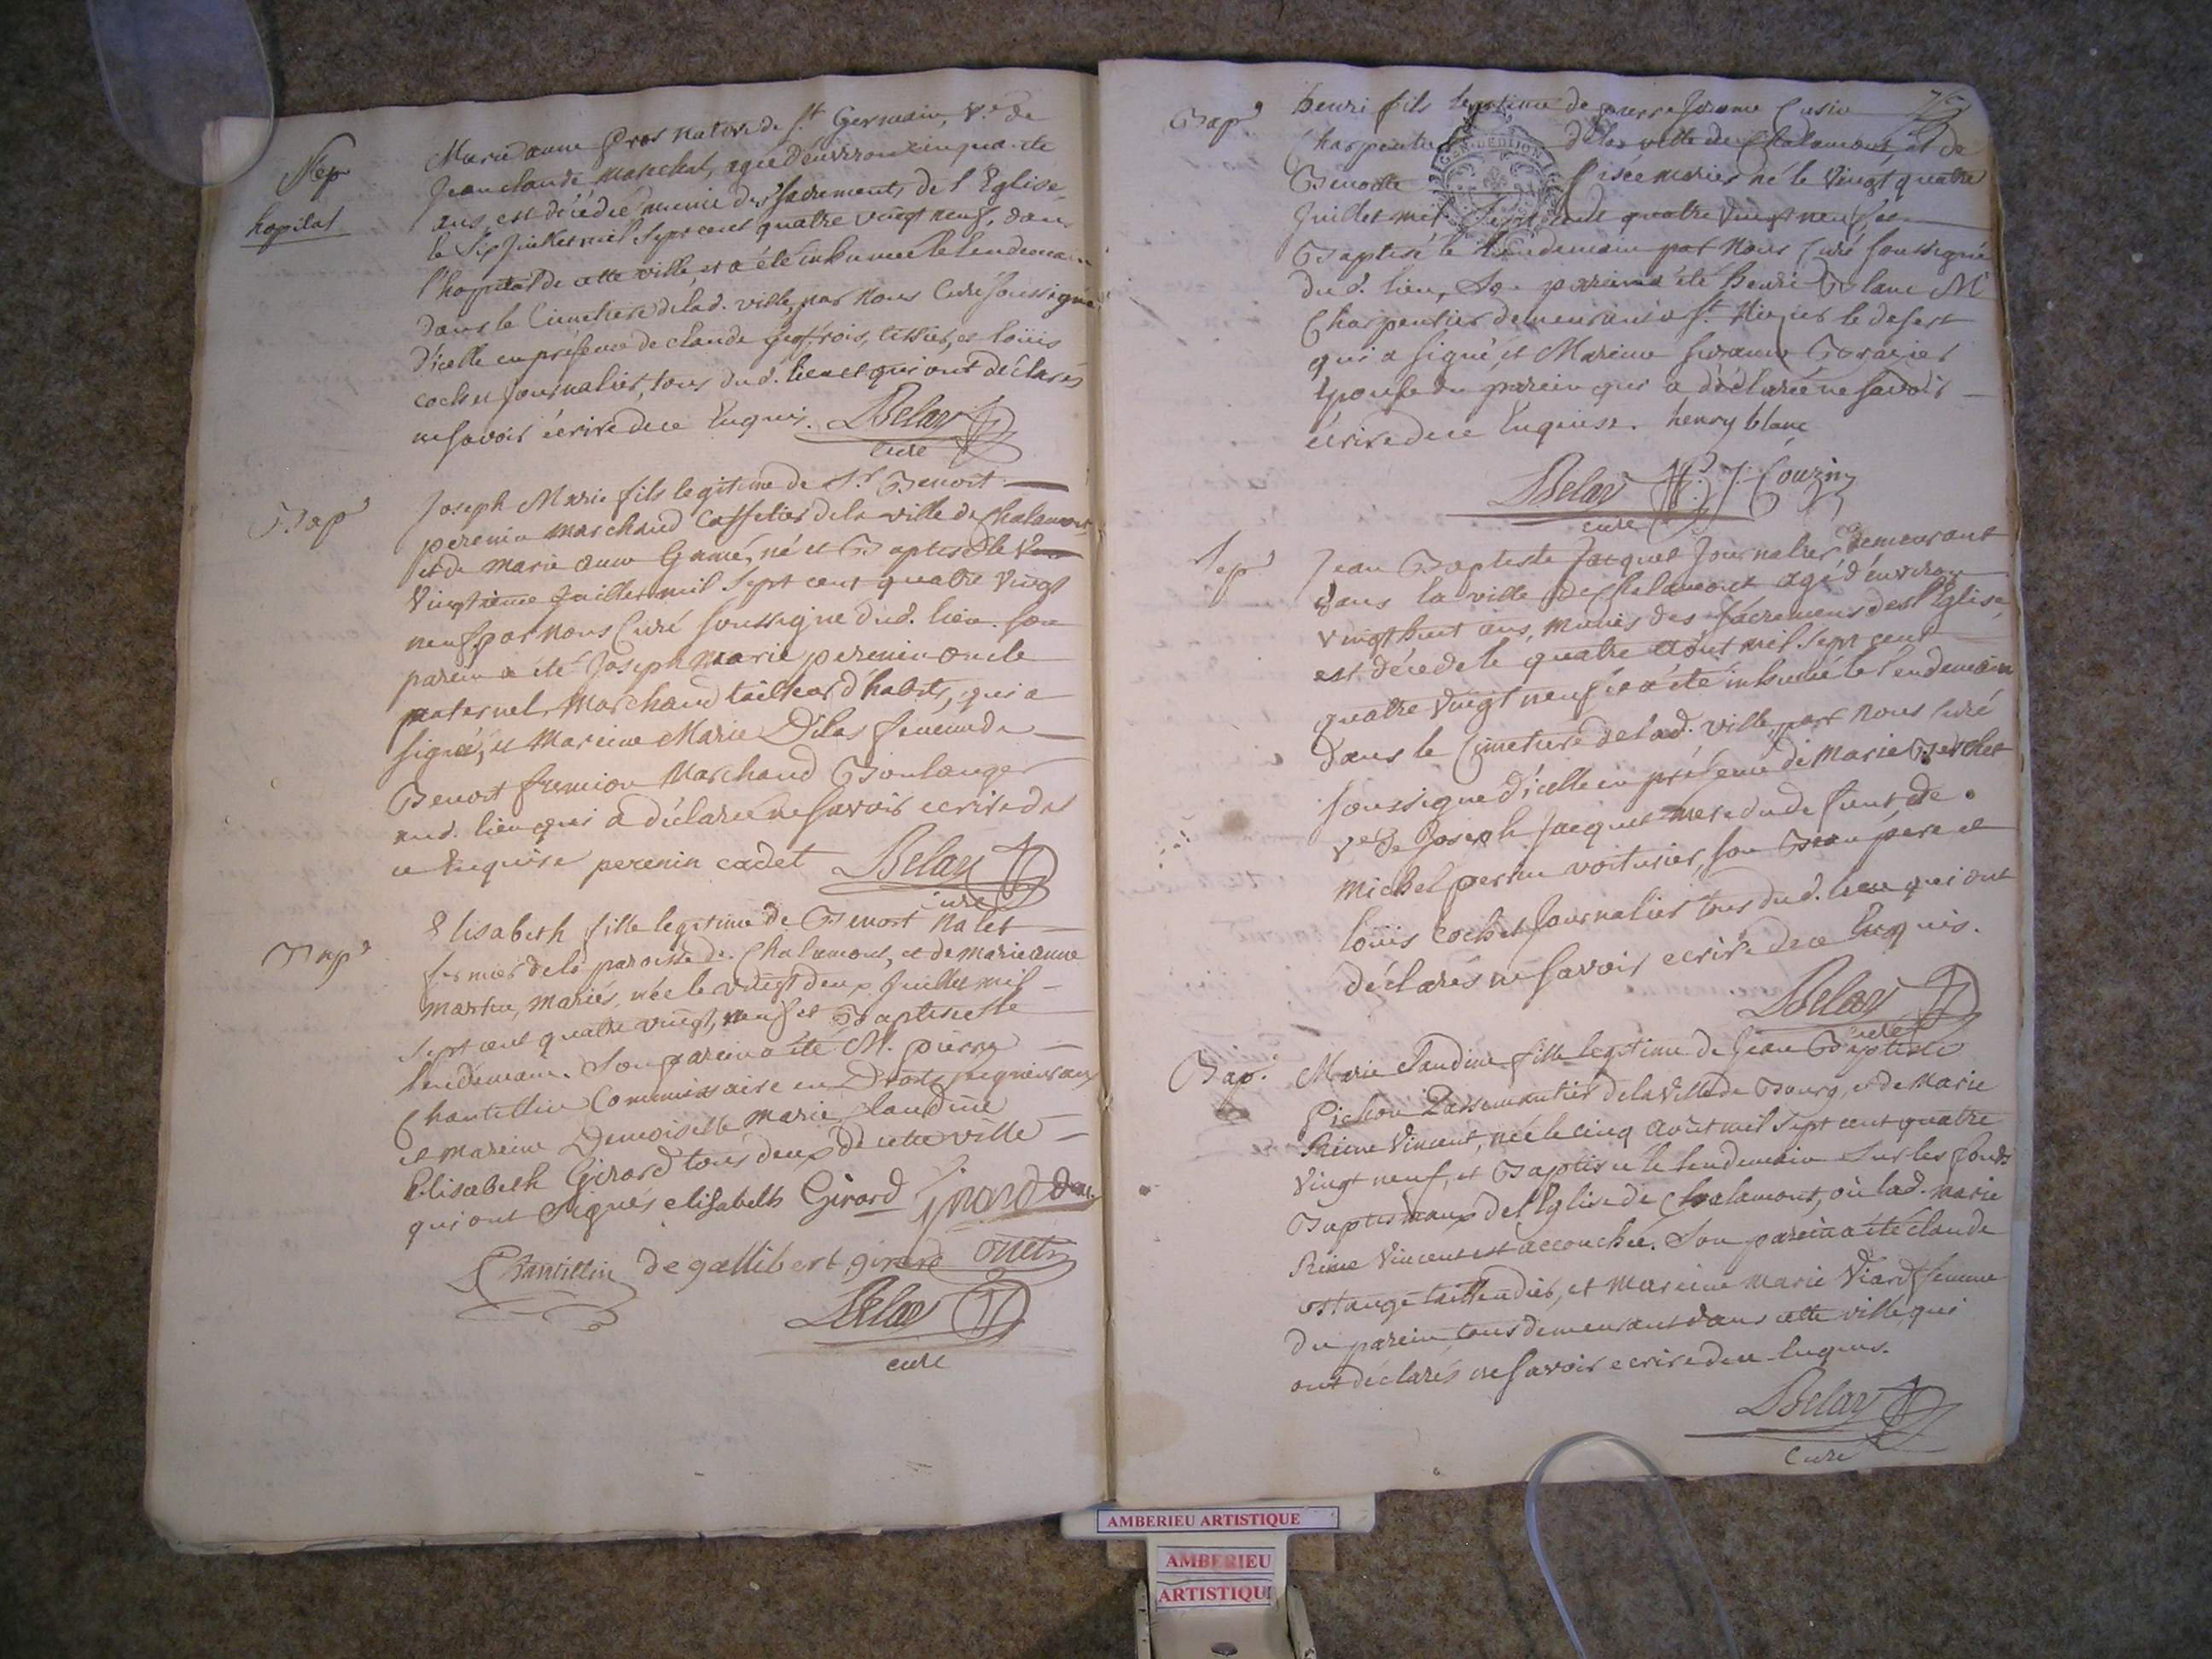 Sep
hopital
Marie anne Gros native de St Germain, Ve de
Jean claude Marechal, agée d'environ cinquante
ans, est décédée munie des sacrements de l'Eglise
le Six juillet mil Sept cent quatre vingt neuf, dans
l'hopital de cette ville, et a été inhumée le lendemain
dans le Cimetiere de lad. ville, par Nous Curé soussigné
d'icelle en présence de claude Geoffrois, tissier, et loüis
cochet journalier, tous dud. lieu et qui ont déclarés
ne savoir écrire de ce Enquis. Belay
Curé
Bap
Joseph Marie fils legitime de Sr Benoit
perenin Marchand Caffetier de la ville de Chalamont
et de Marie anne Gamé, né et Baptisé le
Vingtieme Juillet mil Sept cent quatre vingt
neuf par Nous Curé Soussigné dud. lieu. Son
parein a été Joseph Marie perenin oncle
paternel, Marchand tailleur d'habits, qui a
signé, et Mareine Marie Dilas femme de
Benoit fremion Marchand Boulanger
aud. lieu qui a déclarée ne savoir ecrire de
ce Enquise perenin cadet Belay
Curé
Bap
Elisabeth fille legitime de Benoit Nalet
fermier de la paroisse de Chalamont, et de marie anne
martin, mariés, née le vingt deux Juillet mil
Sept cent quatre vingt, neuf et Baptisée le
lendemain. Son parein a été M. pierre
Chantillin Commissaire en Droits seigneuraux
et mareine Demoiselle Marie Claudine
Elisabeth Girard tous deux de cette ville
qui ont Signés elisabeth Girard Girard
Chantillin de gallibert girard
Belay
curé
Bap
henri fils legitime de pierre Jerome Cusin
Charpentier de la ville de Chalamont, et de
Benoite mariés né le Vingt quatre
Juillet mil Sept cent quatre vingt neuf et
Baptisé le lendemain par Nous Curé soussigné
dud. lieu, Son parein a été henri Blanc Me
Charpentier demeurant a St Nizier le desert
qui a signé, et Mareine suzanne Brazier
Epouse du parein qui a déclarée ne savoir
écrire de ce Enquise. henry blanc
Belay J. Couzin
curé
GEN. DE DIJON
Sep
Jean Baptiste Jacquet Journalier demeurant
dans la ville de Chalamont agé d'environ
vingt huit ans, munis des sacremens de l'Eglise,
est décedé le quatre août mil sept cent
quatre vingt neuf et a été inhumé le lendemain
dans le Cimetiere de lad. ville, par Nous Curé
soussigné d'icelle en présence de Marie Berchet
Ve de Joseph Jacquet mere du defunt de
Michel perrin voiturier, son Beau pere et
loüis Cochet Journalier tous dud. lieu qui ont
déclarés ne savoir ecrire de ce Enquis.
Belay
Curé
Bap.
Marie Claudine fille legitime de Jean Baptiste
Pichon Passementier de la Ville de Bourg, et de Marie
Reine Vincent, née le cinq août mil sept cent quatre
vingt neuf, et Baptisée le lendemain Sur les fonds
Baptismaux de l'Eglise de Chalamont, où lad. marie
Reine Vincent est accouchée. Son parein a été claude
taillendier, et Mareine Marie Viard femme
du parein, tous demeurant dans cette ville, qui
ont déclarés ne savoir ecrire de ce Enquis.
Belay
Curé
AMBERIEU ARTISTIQUE
AMBERIEU
ARTISTIQU